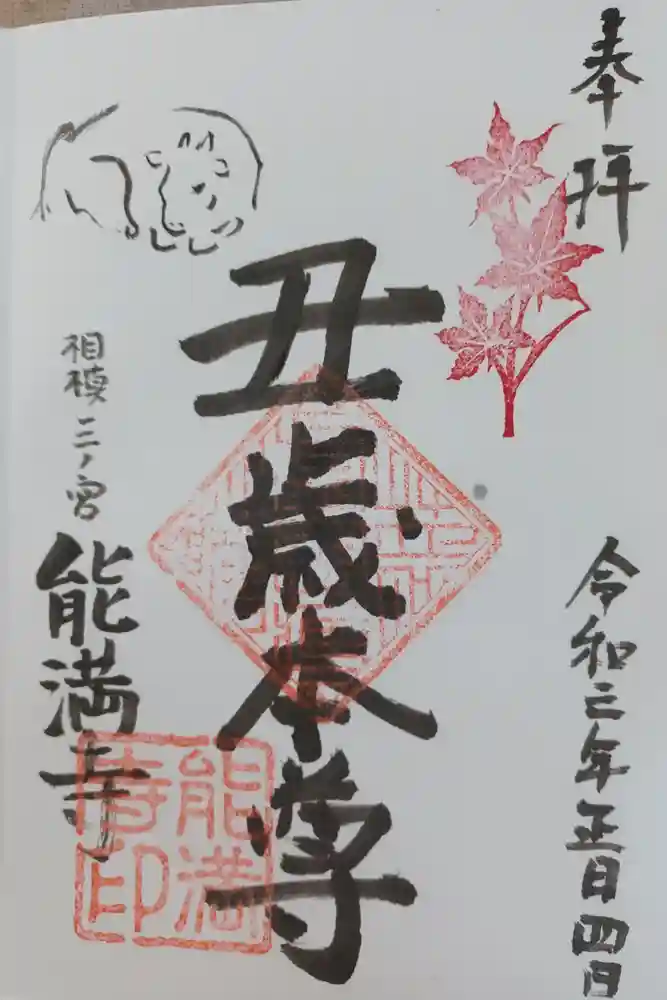 奉拝
令和三年正日四日
丑歳本尊
相模三ノ宮
能満寺
能満
寺印